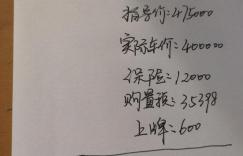 指导价:475000
实际车价:400000
保险:12000
购置税:35398
上牌:600